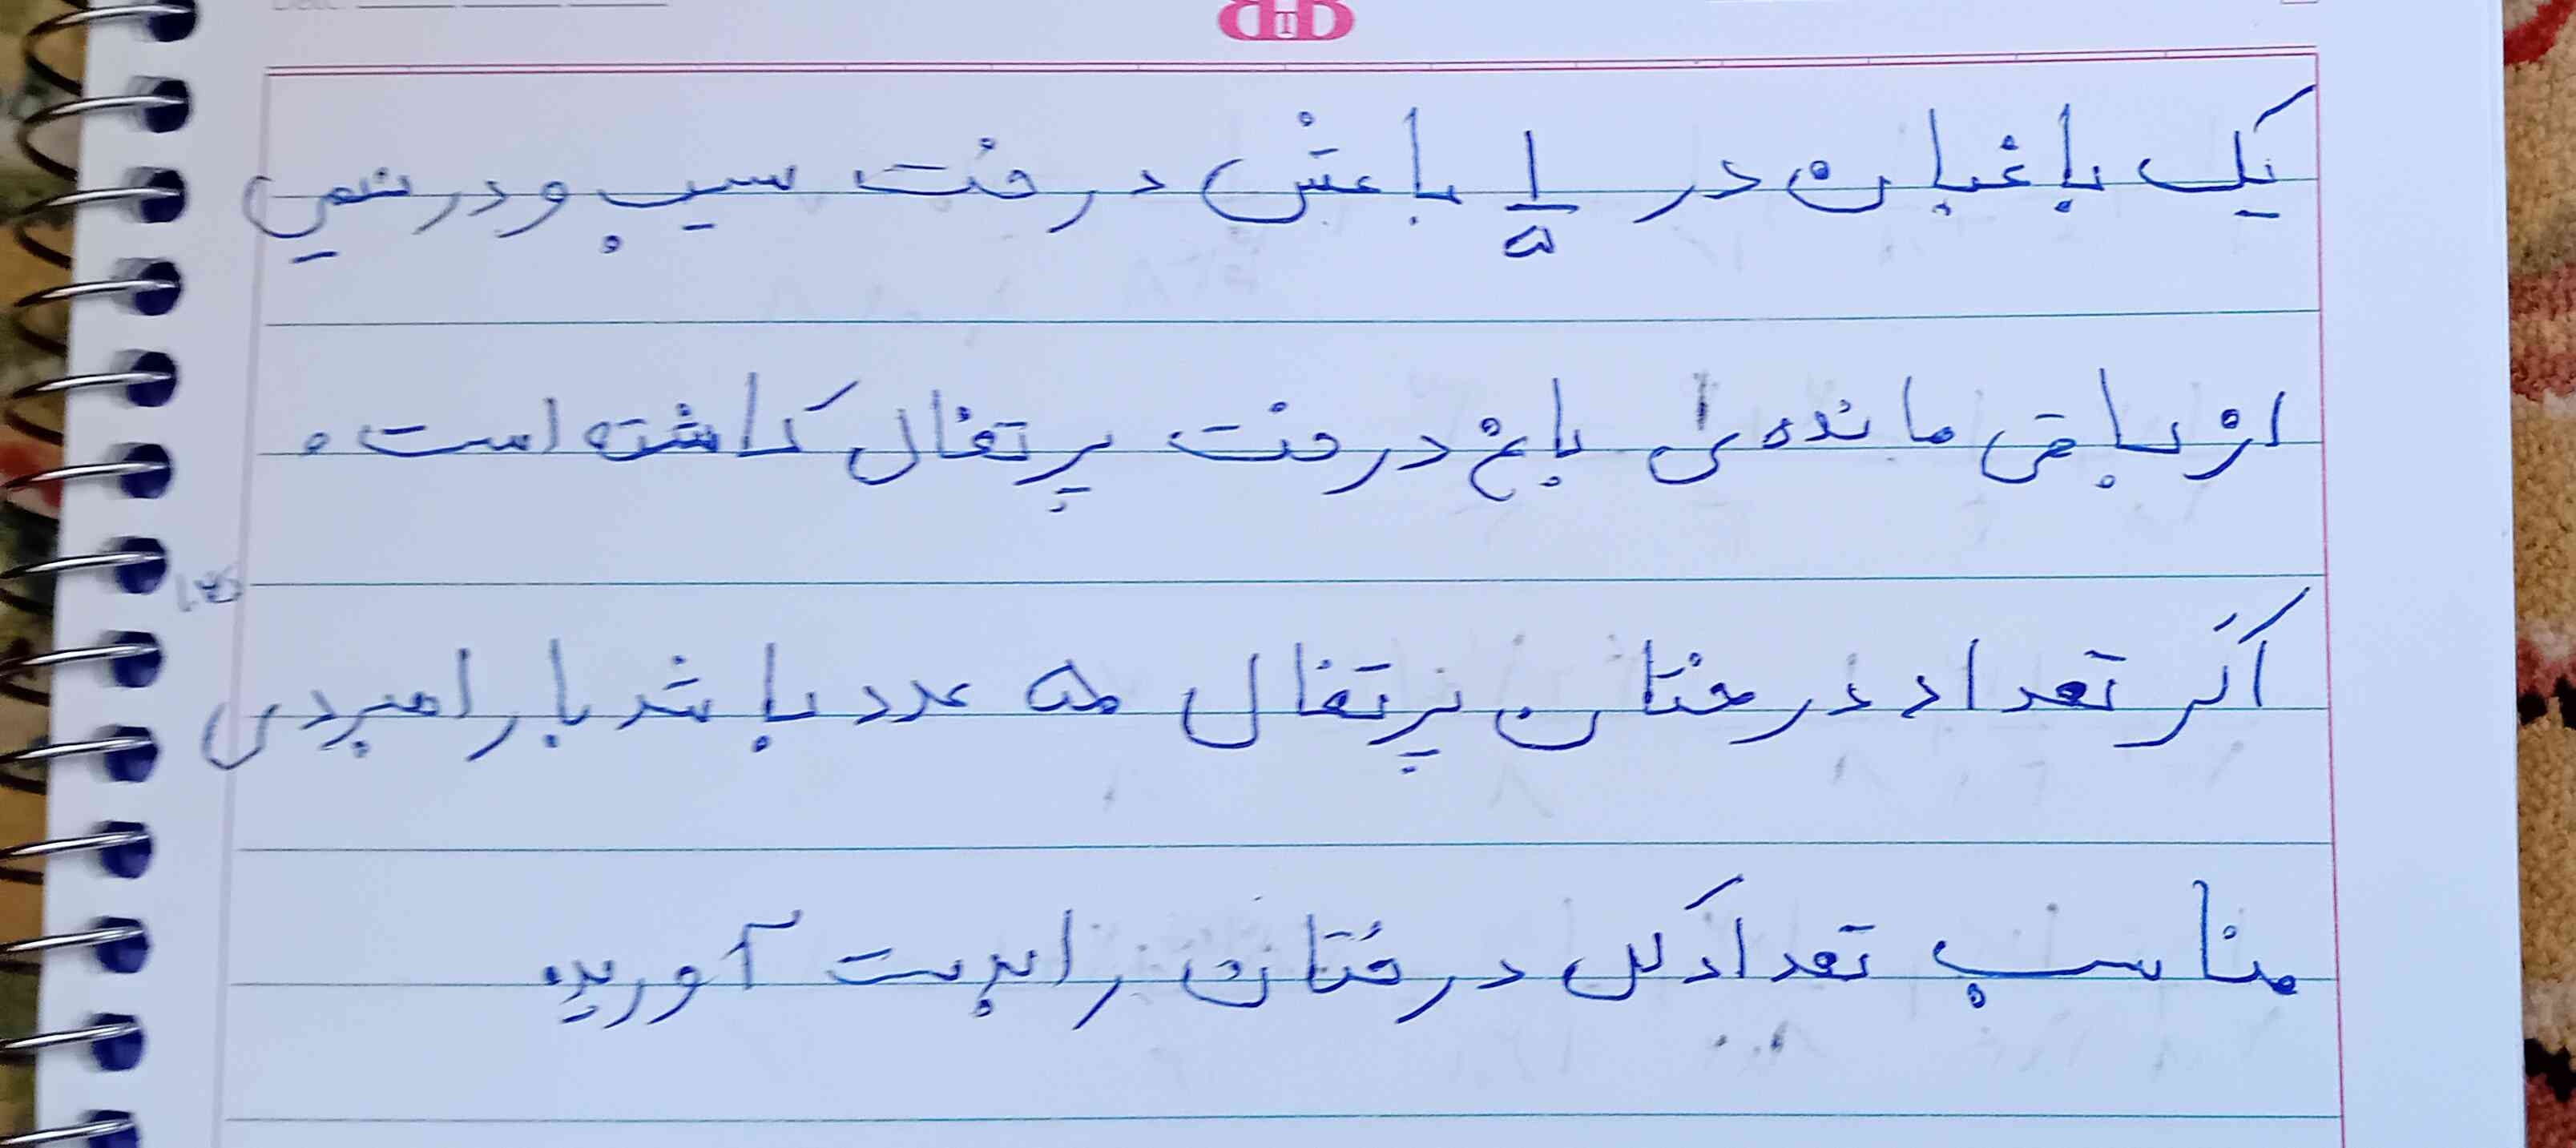 یک باغبان در ۱/۵ باغش درخت سیب و در نیمی
از باقی مانده ی باغ درخت پرتقال کاشته است.
اگر تعداد درختان پرتقال عدد باشد با راهبردی
مناسب تعداد کل درختان را بدست آورید.